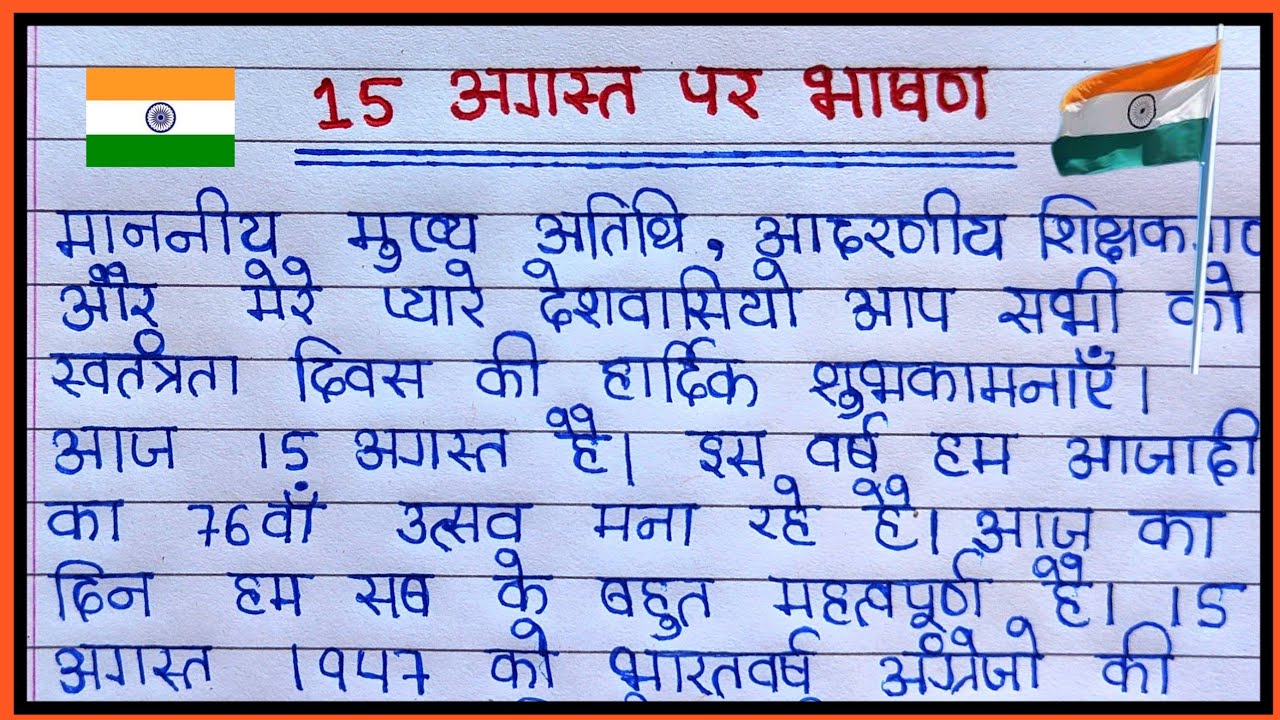 15 अगस्त पर भाषण
माननीय मुख्य अतिथि, आदरणीय शिक्षकगण
और मेरे प्यारे देशवासियो आप सभी को
स्वतंत्रता दिवस की हार्दिक शुभकामनाएँ।
आज 15 अगस्त है। इस वर्ष हम आजादी
का 76वाँ उत्सव मना रहे हैं। आज का
दिन हम सब के बहुत महत्वपूर्ण है। 15
अगस्त 1947 को भारतवर्ष अंग्रेजो की